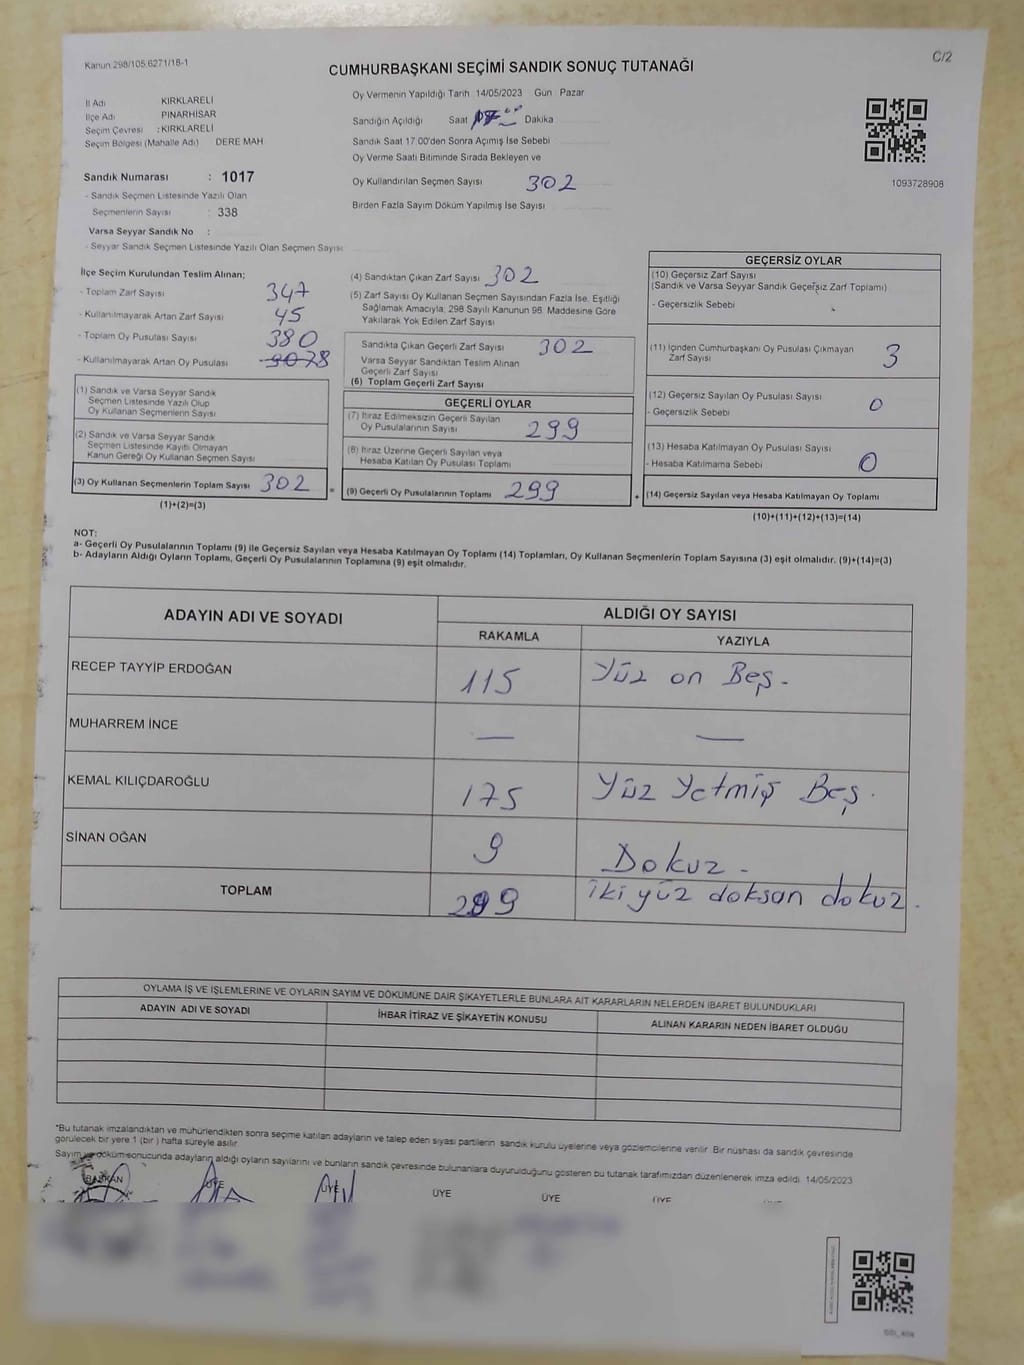 Kanun 298/105,6271/18-1
C/2
CUMHURBAŞKANI SEÇİMİ SANDIK SONUÇ TUTANAĞI
İl Adı KIRKLARELİ
İlçe Adı PINARHİSAR
Seçim Çevresi : KIRKLARELİ
Seçim Bölgesi (Mahalle Adı) DERE MAH
Sandık Numarası : 1017
- Sandık Seçmen Listesinde Yazılı Olan
Seçmenlerin Sayısı : 338
Varsa Seyyar Sandık No :
- Seyyar Sandık Seçmen Listesinde Yazılı Olan Seçmen Sayısı:
Oy Vermenin Yapıldığı Tarih 14/05/2023 Gün : Pazar
Sandığın Açıldığı Saat 17 Dakika
Sandık Saat 17:00'den Sonra Açımış İse Sebebi
Oy Verme Saati Bitiminde Sırada Bekleyen ve
Oy Kullandırılan Seçmen Sayısı 302
Birden Fazla Sayım Döküm Yapılmış İse Sayısı
1093728908
İlçe Seçim Kurulundan Teslim Alınan;
- Toplam Zarf Sayısı 347
- Kullanılmayarak Artan Zarf Sayısı 45
- Toplam Oy Pusulası Sayısı 380
- Kullanılmayarak Artan Oy Pusulası 78
(1) Sandık ve Varsa Seyyar Sandık
Seçmen Listesinde Yazılı Olup
Oy Kullanan Seçmenlerin Sayısı
(2) Sandık ve Varsa Seyyar Sandık
Seçmen Listesinde Kayıtlı Olmayan
Kanun Gereği Oy Kullanan Seçmen Sayısı
(3) Oy Kullanan Seçmenlerin Toplam Sayısı 302 =
(1)+(2)=(3)
(4) Sandıktan Çıkan Zarf Sayısı 302
(5) Zarf Sayısı Oy Kullanan Seçmen Sayısından Fazla İse, Eşitliği
Sağlamak Amacıyla; 298 Sayılı Kanunun 98. Maddesine Göre
Yakılarak Yok Edilen Zarf Sayısı
Sandıkta Çıkan Geçerli Zarf Sayısı 302
Varsa Seyyar Sandıktan Teslim Alınan
Geçerli Zarf Sayısı
(6) Toplam Geçerli Zarf Sayısı
GEÇERLİ OYLAR
(7) İtiraz Edilmeksizin Geçerli Sayılan
Oy Pusulalarının Sayısı 299
(8) İtiraz Üzerine Geçerli Sayılan veya
Hesaba Katılan Oy Pusulası Toplamı
(9) Geçerli Oy Pusulalarının Toplamı 299 +
GEÇERSİZ OYLAR
(10) Geçersiz Zarf Sayısı
(Sandık ve Varsa Seyyar Sandık Geçersiz Zarf Toplamı)
- Geçersizlik Sebebi
(11) İçinden Cumhurbaşkanı Oy Pusulası Çıkmayan
Zarf Sayısı 3
(12) Geçersiz Sayılan Oy Pusulası Sayısı 0
- Geçersizlik Sebebi
(13) Hesaba Katılmayan Oy Pusulası Sayısı
- Hesaba Katılmama Sebebi 0
(14) Geçersiz Sayılan veya Hesaba Katılmayan Oy Toplamı
(10)+(11)+(12)+(13)=(14)
NOT:
a- Geçerli Oy Pusulalarının Toplamı (9) ile Geçersiz Sayılan veya Hesaba Katılmayan Oy Toplamı (14) Toplamları, Oy Kullanan Seçmenlerin Toplam Sayısına (3) eşit olmalıdır. (9)+(14)=(3)
b- Adayların Aldığı Oyların Toplamı, Geçerli Oy Pusulalarının Toplamına (9) eşit olmalıdır.
ADAYIN ADI VE SOYADI
ALDIĞI OY SAYISI
RAKAMLA YAZIYLA
RECEP TAYYİP ERDOĞAN 115 Yüz on Beş.
MUHARREM İNCE — —
KEMAL KILIÇDAROĞLU 175 Yüz Yetmiş Beş.
SİNAN OĞAN 9 Dokuz.
TOPLAM 299 iki yüz doksan dokuz.
OYLAMA İŞ VE İŞLEMLERİNE VE OYLARIN SAYIM VE DÖKÜMÜNE DAİR ŞİKAYETLERLE BUNLARA AİT KARARLARIN NELERDEN İBARET BULUNDUKLARI
ADAYIN ADI VE SOYADI İHBAR İTİRAZ VE ŞİKAYETİN KONUSU ALINAN KARARIN NEDEN İBARET OLDUĞU
*Bu tutanak imzalandıktan ve mühürlendikten sonra seçime katılan adayların ve talep eden siyasi partilerin sandık kurulu üyelerine veya gözlemcilerine verilir. Bir nüshası da sandık çevresinde
görülecek bir yere 1 (bir) hafta süreyle asılır.
Sayım ve döküm sonucunda adayların aldığı oyların sayılarını ve bunların sandık çevresinde bulunanlara duyurulduğunu gösteren bu tutanak tarafımızdan düzenlenerek imza edildi. 14/05/2023
BAŞKAN ÜYE ÜYE ÜYE ÜYE ÜYE